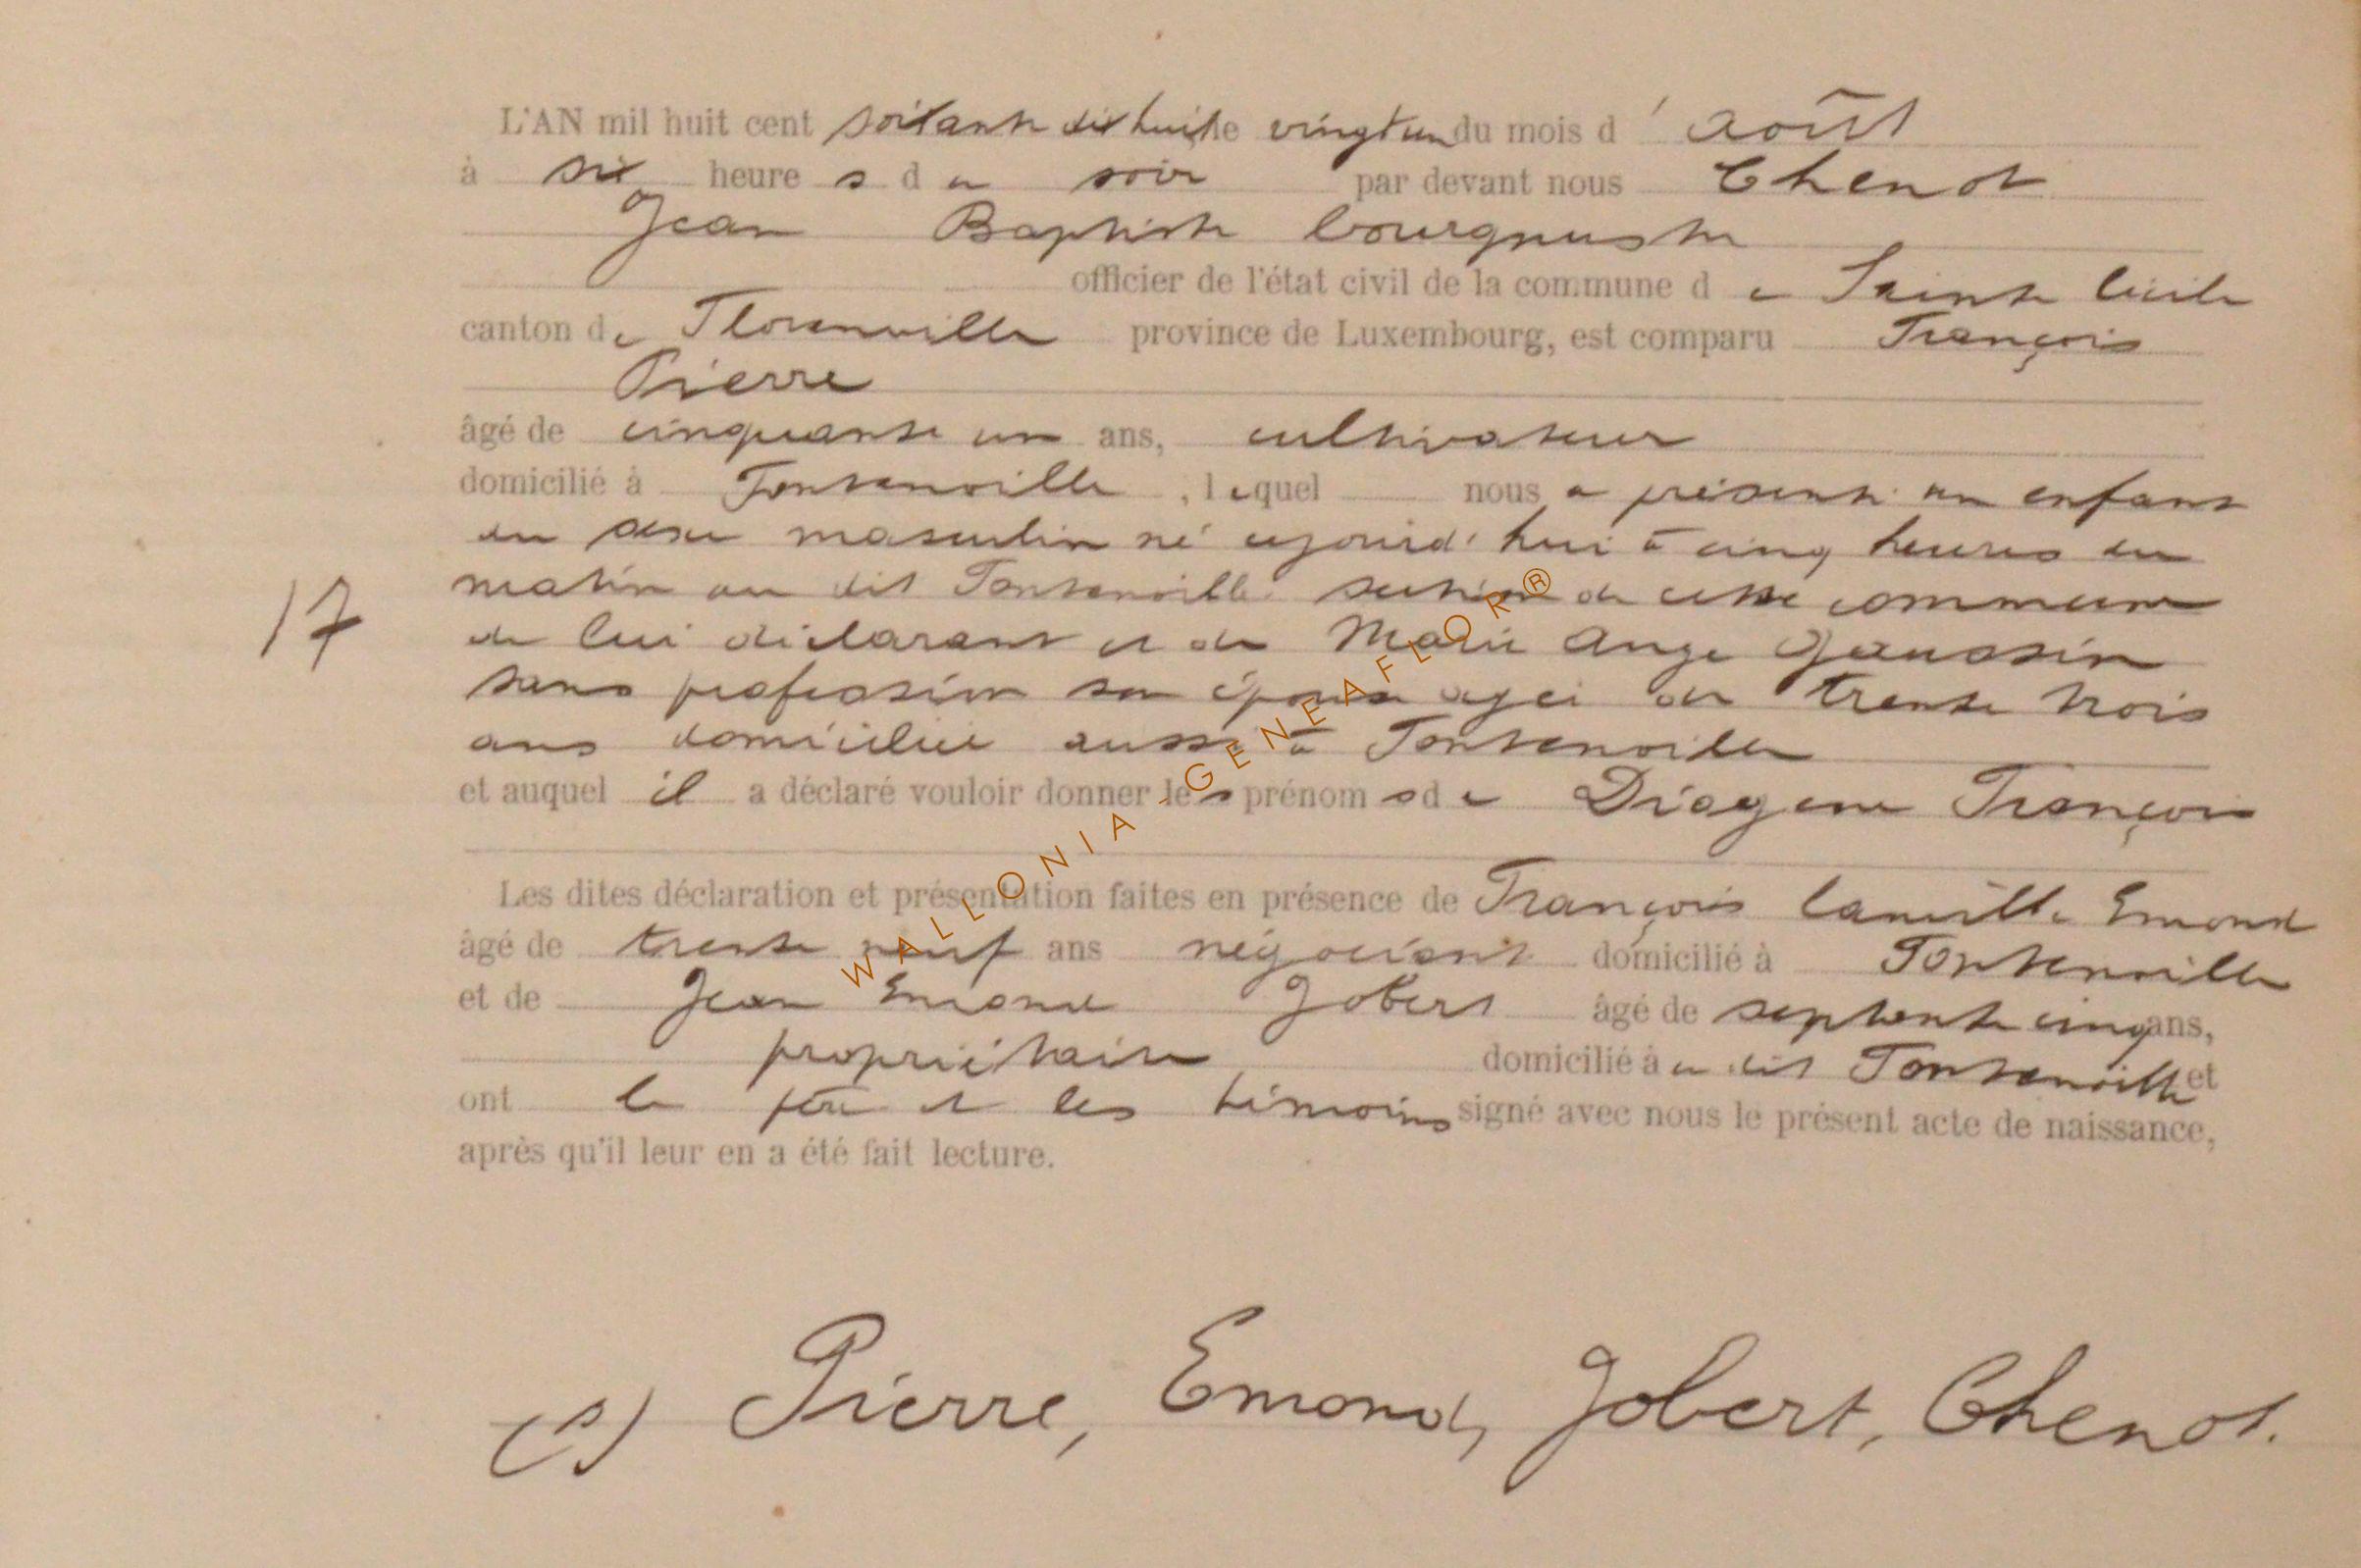 L'AN mil huit cent soixante dix huit, le vingt un du mois d'août
à six heures du soir par devant nous Chenot
Jean Baptiste bourgmestre
officier de l'état civil de la commune de Sainte Cécile
canton de Florenville province de Luxembourg, est comparu François
Pierre
âgé de cinquante un ans, cultivateur
domicilié à Fontenoille, lequel nous a présenté un enfant
du sexe masculin né cejourd'hui à cinq heures du
matin au dit Fontenoille section de cette commune
de lui déclarant et de Marie Ange Gaussin
sans profession son épouse agée de trente trois
ans domiciliée aussi à Fontenoille
et auquel il a déclaré vouloir donner les prénoms de Diogène François
Les dites déclaration et présentation faites en présence de François Camille Emond
âgé de trente neuf ans négociant domicilié à Fontenoille
et de Jean Emond Jobert âgé de septente cinq ans,
propriétaire domicilié à u dit Fontenoille et
17
ont le père et les témoins signé avec nous le présent acte de naissance,
après qu'il leur en a été fait lecture.
(s) Pierre, Emond, Jobert, Chenot.
WALLONIA GENEAFLOR®